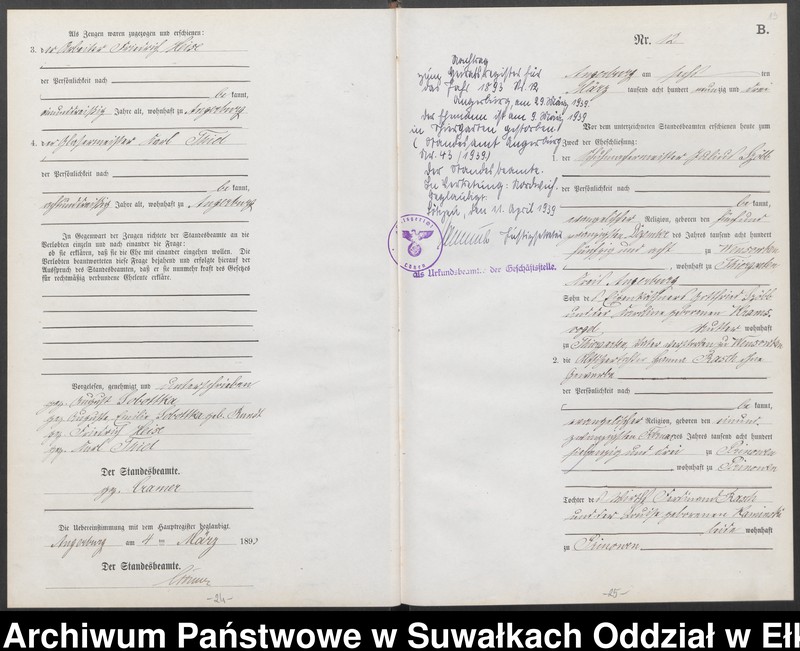 Als Zeugen waren zugezogen und erschienen:
3. der Arbeiter Friedrich Heise
der Persönlichkeit nach
be kannt,
einunddreißig Jahre alt, wohnhaft zu Angerburg
4. der Glasermeister Karl Thiel
der Persönlichkeit nach
be kannt,
Jahre alt, wohnhaft zu Angerburg
In Gegenwart der Zeugen richtete der Standesbeamte an die
Verlobten einzeln und nach einander die Frage:
ob sie erklären, daß sie die Ehe mit einander eingehen wollen. Die
Verlobten beantworteten diese Frage bejahend und erfolgte hierauf der
Ausspruch des Standesbeamten, daß er sie nunmehr kraft des Gesetzes
für rechtmäßig verbundene Eheleute erkläre.
Vorgelesen, genehmigt und unterschrieben
gez. August Sobottka
gez. Auguste Emilie Sobottka geb.
gez. Friedrich Heise
gez. Karl Thiel
Der Standesbeamte.
gez. Cramer
Die Uebereinstimmung mit dem Hauptregister beglaubigt.
Angerburg am 4 ten März 1893
Der Standesbeamte.
Cramer
-24-
B.
Nr. 12
Nachtrag
zum Heiratsregister für
das Jahr 1893 Nr. 12
Angerburg, am 29. März 1939
Der Ehemann ist am 9. März 1939
in Thiergarten gestorben.
(Standesamt Angerburg
Nr. 43/1939)
Der Standesbeamte.
In Vertretung:
Beglaubigt.
Lötzen, den 11. April 1939
als Urkundsbeamter der Geschäftsstelle.
Angerburg am sechsten
März tausend acht hundert neunzig und drei
Vor dem unterzeichneten Standesbeamten erschienen heute zum
Zweck der Eheschließung:
1. der
der Persönlichkeit nach
be kannt,
evangelischer Religion, geboren den fünfund
zwanzigsten Dezember des Jahres tausend acht hundert
fünfzig und acht zu Wensowken
, wohnhaft zu Thiergarten
Kreis Angerburg
Sohn des Gottfried
und der Karoline geborenen
Mutter wohnhaft
zu Thiergarten, Vater verstorben zu Wensowken
2. die Wirthstochter Rasch ohne
Gewerbe
der Persönlichkeit nach
be kannt,
evangelischer Religion, geboren den einund
zwanzigsten des Jahres tausend acht hundert
siebenzig und drei zu Prinowen
, wohnhaft zu Prinowen
Tochter des Wirths Ferdinand Rasch
und der Louise geborenen Kaminski
beide wohnhaft
zu Prinowen
-25-
Archiwum Państwowe w Suwałkach Oddział w Ełk